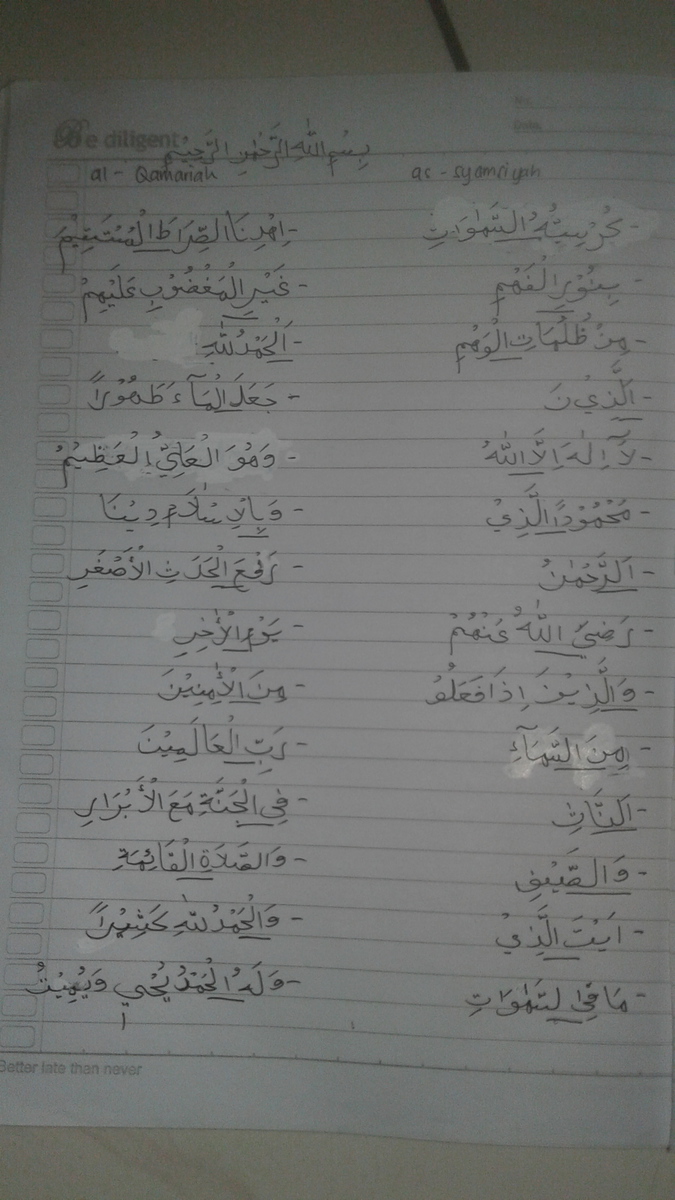 No:
Date:
Be diligent
بِسْمِ اللهِ الرَّحْمٰنِ الرَّحِيْمِ
as - syamsiyah
- السَّمٰوَاتِ
- بِنُوْرِ الْفَهْمِ
- مِنْ ظُلُمَاتِ الْوَهْمِ
- اَلَّذِيْنَ
- لَآ اِلٰهَ اِلَّا اللهُ
- مَحْمُوْدًا الَّذِيْ
- اَلرَّحْمٰنُ
- رَضِيَ اللهُ عَنْهُمْ
- وَالَّذِيْنَ اِذَا فَعَلُوْ
- مِنَ السَّمَآءِ
- وَالصَّيْفِ
- الَّذِيْ
- مَا فِى لسَّمٰوَاتِ
al - Qamariah
- اِهْدِنَا الصِّرَاطَ الْمُسْتَقِيْمَ
- غَيْرِ الْمَغْضُوْبِ عَلَيْهِمْ
- اَلْحَمْدُ لِلّٰهِ
- جَعَلَ الْمَآءَ طَهُوْرًا
- وَهُوَ الْعَلِيُّ الْعَظِيْمُ
- وَبِالْاِسْلَامِ دِيْنَا
- رَفْعَ الْحَدَثِ الْأَصْغَرِ
- يَوْمِ الْأٰخِرِ
- مِنَ الْأٰمِنِيْنَ
- رَبِّ الْعَالَمِيْنَ
- فِي الْجَنَّةِ مَعَ الْأَبْرَارِ
- وَالصَّلَاةِ الْقَائِمَةِ
- وَالْحَمْدُ لِلّٰهِ كَثِيْرًا
- وَلَهُ الْحَمْدُ يُحْيِي وَيُمِيْتُ
Better late than never